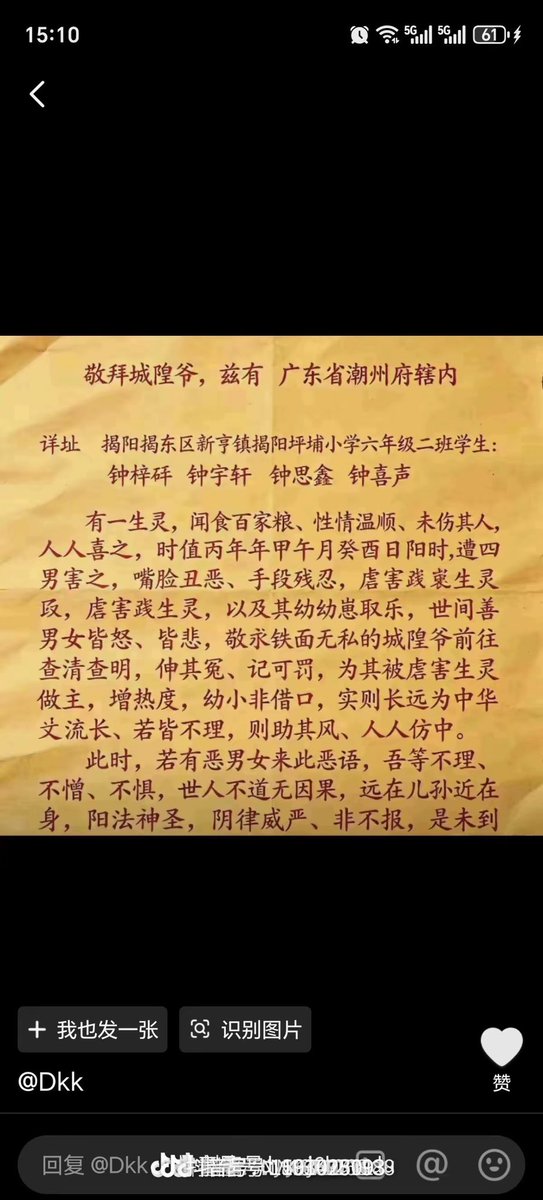 15:10
5G
5G
61
敬拜城隍爷，兹有 广东省潮州府辖内
详址 揭阳揭东区新亨镇揭阳坪埔小学六年级二班学生：
钟梓砰 钟宇轩 钟思鑫 钟喜声
有一生灵，闻食百家粮、性情温顺、未伤其人，
人人喜之，时值丙年年甲午月癸酉日阳时,遭四
男害之，嘴脸丑恶、手段残忍，虐害践 生灵
，虐害践生灵，以及其幼幼崽取乐，世间善
男女皆怒、皆悲，敬 铁面无私的城隍爷前往
查清查明，伸其冤、记可罚，为其被虐害生灵
做主，增热度，幼小非借口，实则长远为中华
流长、若皆不理，则助其风、人人仿中。
此时，若有恶男女来此恶语，吾等不理、
不憎、不惧，世人不道无因果，远在儿孙近在
身，阳法神圣，阴律威严、非不报，是未到
我也发一张
识别图片
赞
@Dkk
回复 @Dkk